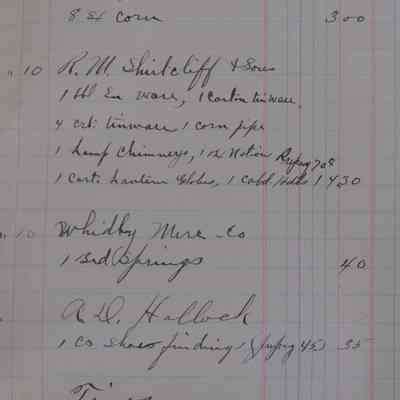 8 sx corn 3 00
" 10 R. M. Shutcliff & Sons
1 bbl En ware, 1 carton tinware,
4 crt. tinware 1 corn pipe
1 Lamp Chimneys, 1 bx Notion Prepay 708
1 cart. Lantern Globes, 1 1 4 30
" 10 Whidby Merc Co
1 Bed Springs 40
A. D. Hallock
1 cs shoes findings (prepay 45) 35